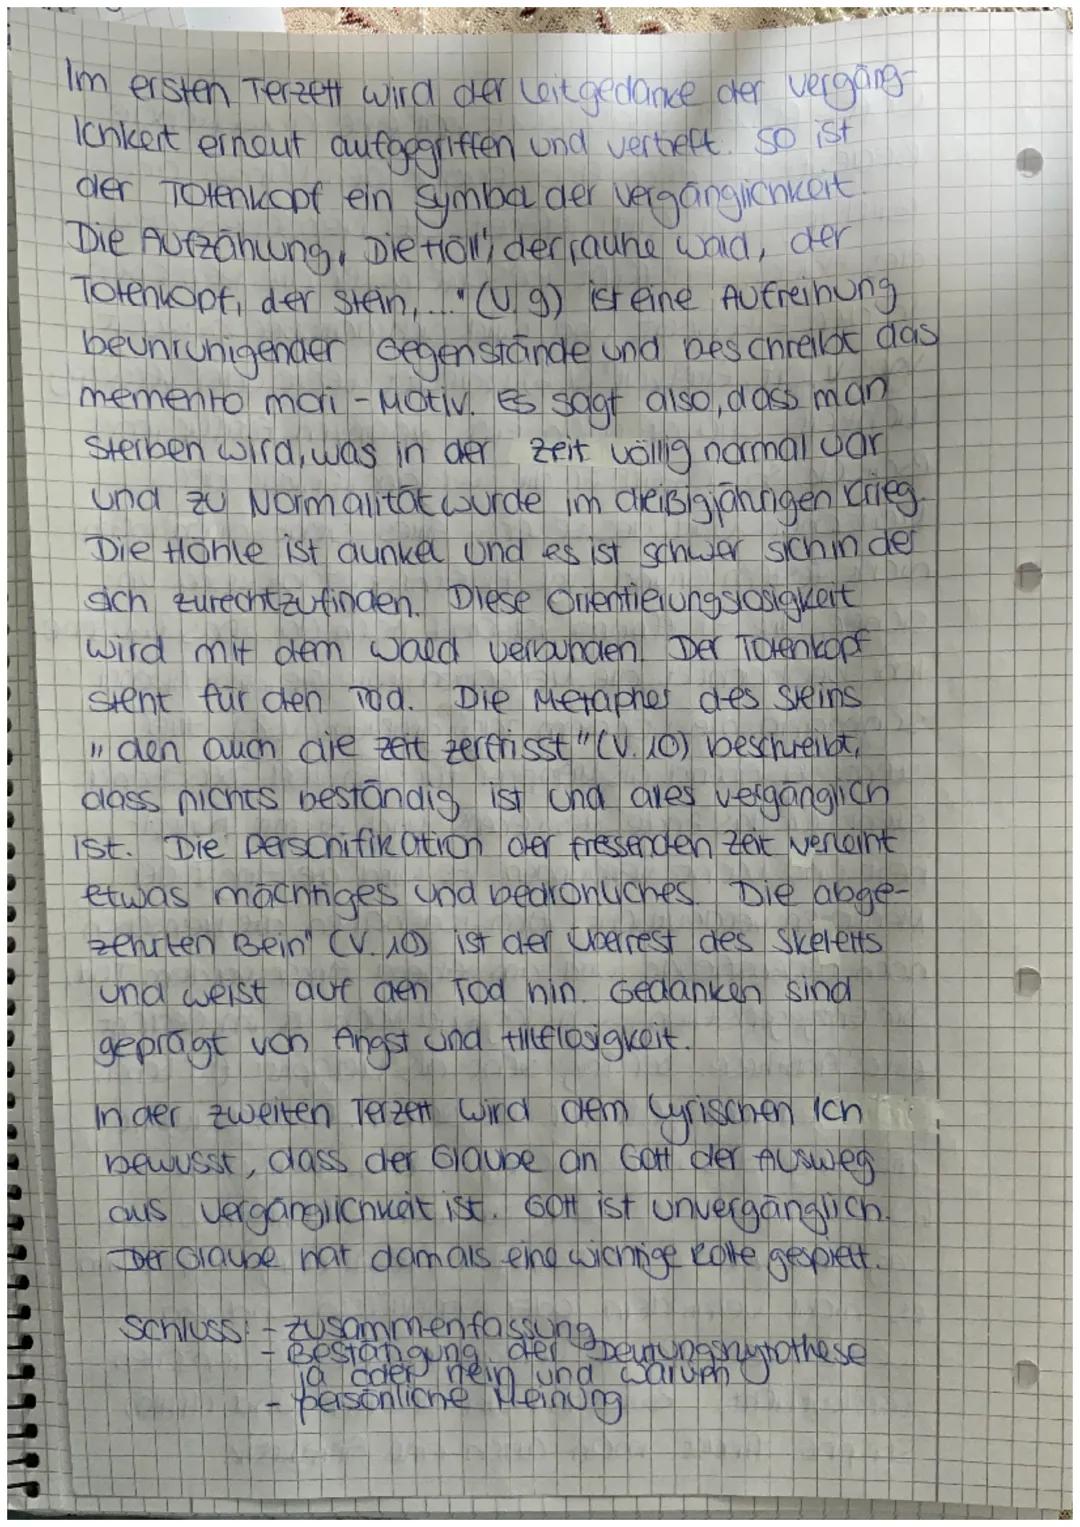 Im ersten Terzett wird der Leitgedanke der Vergäng-
lichkeit erneut aufgegriffen und vertieft. So ist
der Totenkopf ein Symbol der Vergänglichkeit.
Die Aufzählung „Die Höll', der rauhe Wald, der
Totenkopf, der Stein, ..." (V. 9) ist eine Aufreihung
beunruhigender Gegenstände und beschreibt das
memento mori - Motiv. Es sagt also, dass man
sterben wird, was in der Zeit völlig normal war
und zu Normalität wurde im dreißigjährigen Krieg.
Die Höhle ist dunkel und es ist schwer sich in der
sich zurechtzufinden. Diese Orientierungslosigkeit
wird mit dem Wald verbunden. Der Totenkopf
steht für den Tod. Die Metapher des Steins
„den auch die Zeit zerfrisst" (V. 10) beschreibt,
dass nichts beständig ist und alles vergänglich
ist. Die Personifikation der fressenden Zeit verleiht
etwas mächtiges und bedrohliches. Die abge-
zehrten Bein" (V. 10) ist der Überrest des Skeletts
und weist auf den Tod hin. Gedanken sind
geprägt von Angst und Hilflosigkeit.
In der zweiten Terzett wird dem Lyrischen Ich
bewusst, dass der Glaube an Gott der Ausweg
aus Vergänglichkeit ist. Gott ist unvergänglich.
Der Glaube hat damals eine wichtige Rolle gespielt.
Schluss: - Zusammenfassung
- Bestätigung der Deutungshytothese
ja oder nein und warum
- persönliche Meinung